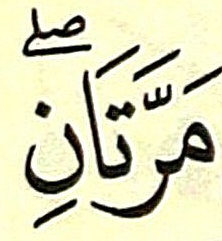 مَرَّتَانِ ۖ